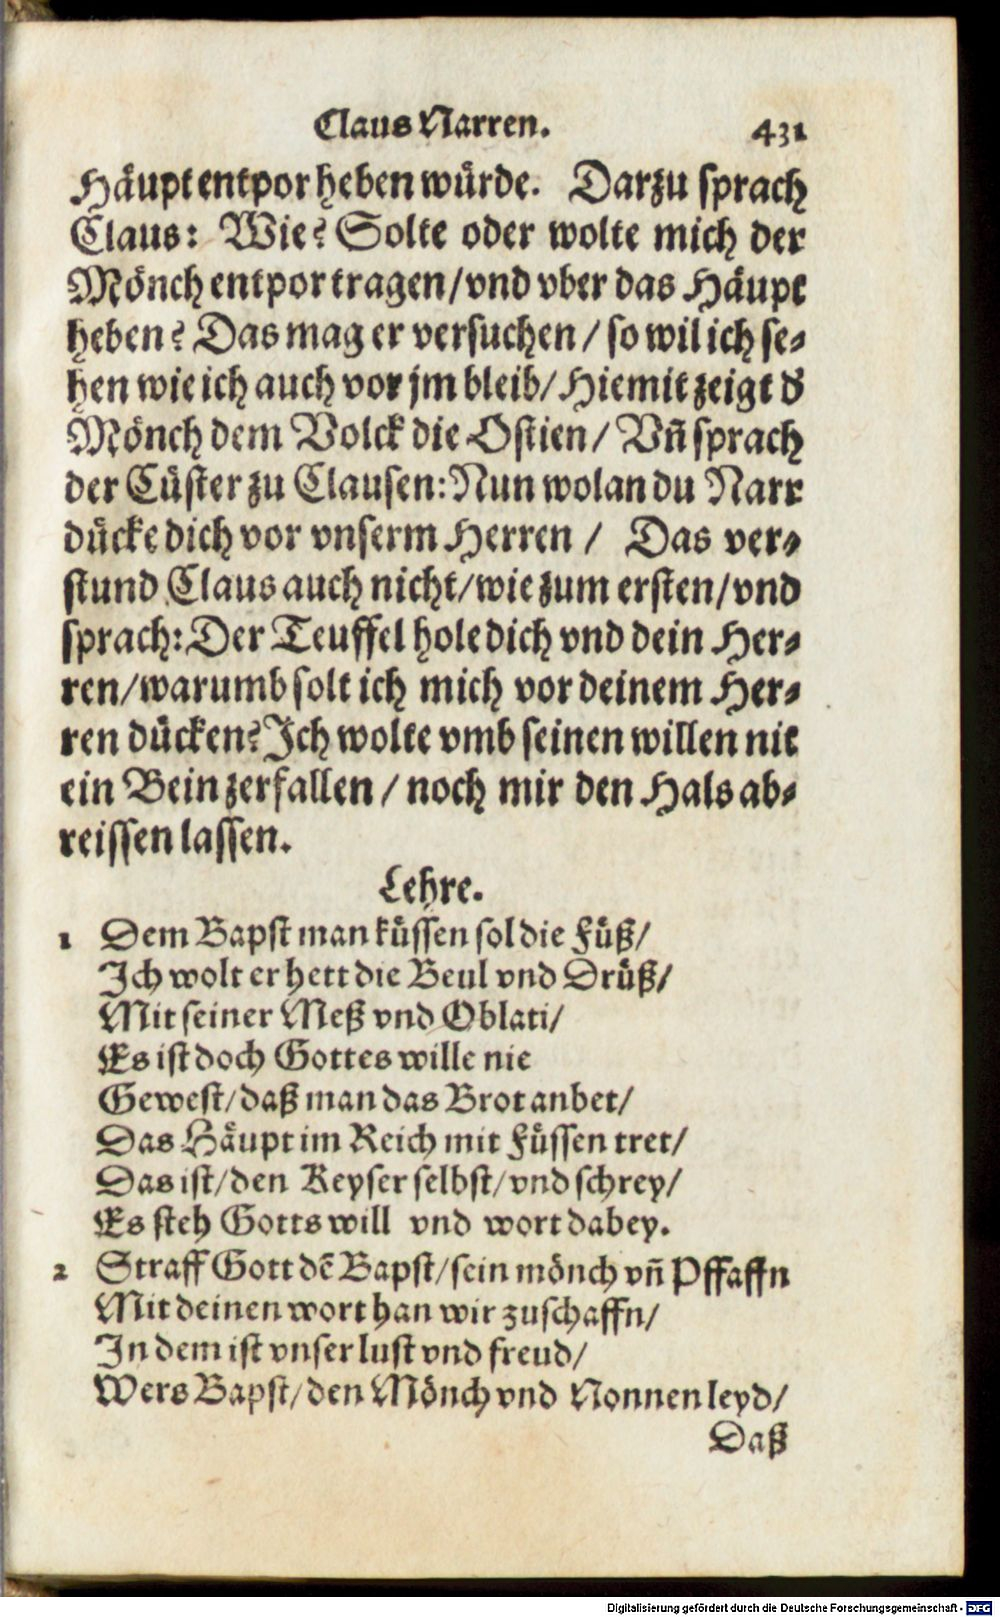 Claus Narren. 431
Häupt entpor heben würde. Darzu sprach
Claus: Wie? Solte oder wolte mich der
Mönch entpor tragen/vnd vber das Häupt
heben? Das mag er versuchen/ so wil ich se-
hen wie ich auch vor jm bleib/ Hiemit zeigt d'
Mönch dem Volck die Ostien/ Vñ sprach
der Cüster zu Clausen: Nun wolan du Narr
dücke dich vor vnserm Herren / Das ver-
stund Claus auch nicht/wie zum ersten/vnd
sprach: Der Teuffel hole dich vnd dein Her-
ren/warumb solt ich mich vor deinem Her-
ren dücken? Ich wolte vmb seinen willen nit
ein Bein zerfallen / noch mir den Hals ab-
reissen lassen.
Lehre.
1 Dem Bapst man küssen sol die Füß/
Ich wolt er hett die Beul vnd Drüß/
Mit seiner Meß vnd Oblati/
Es ist doch Gottes wille nie
Gewest/daß man das Brot anbet/
Das Häupt im Reich mit Füssen tret/
Das ist/den Keyser selbst/vnd schrey/
Es steh Gotts will vnd wort dabey.
2 Straff Gott dē Bapst/sein mönch vñ Pffaffn
Mit deinen wort han wir zuschaffn/
In dem ist vnser lust vnd freud/
Wers Bapst/den Mönch vnd Nonnen leyd/
Daß
Digitalisierung gefördert durch die Deutsche Forschungsgemeinschaft - DFG